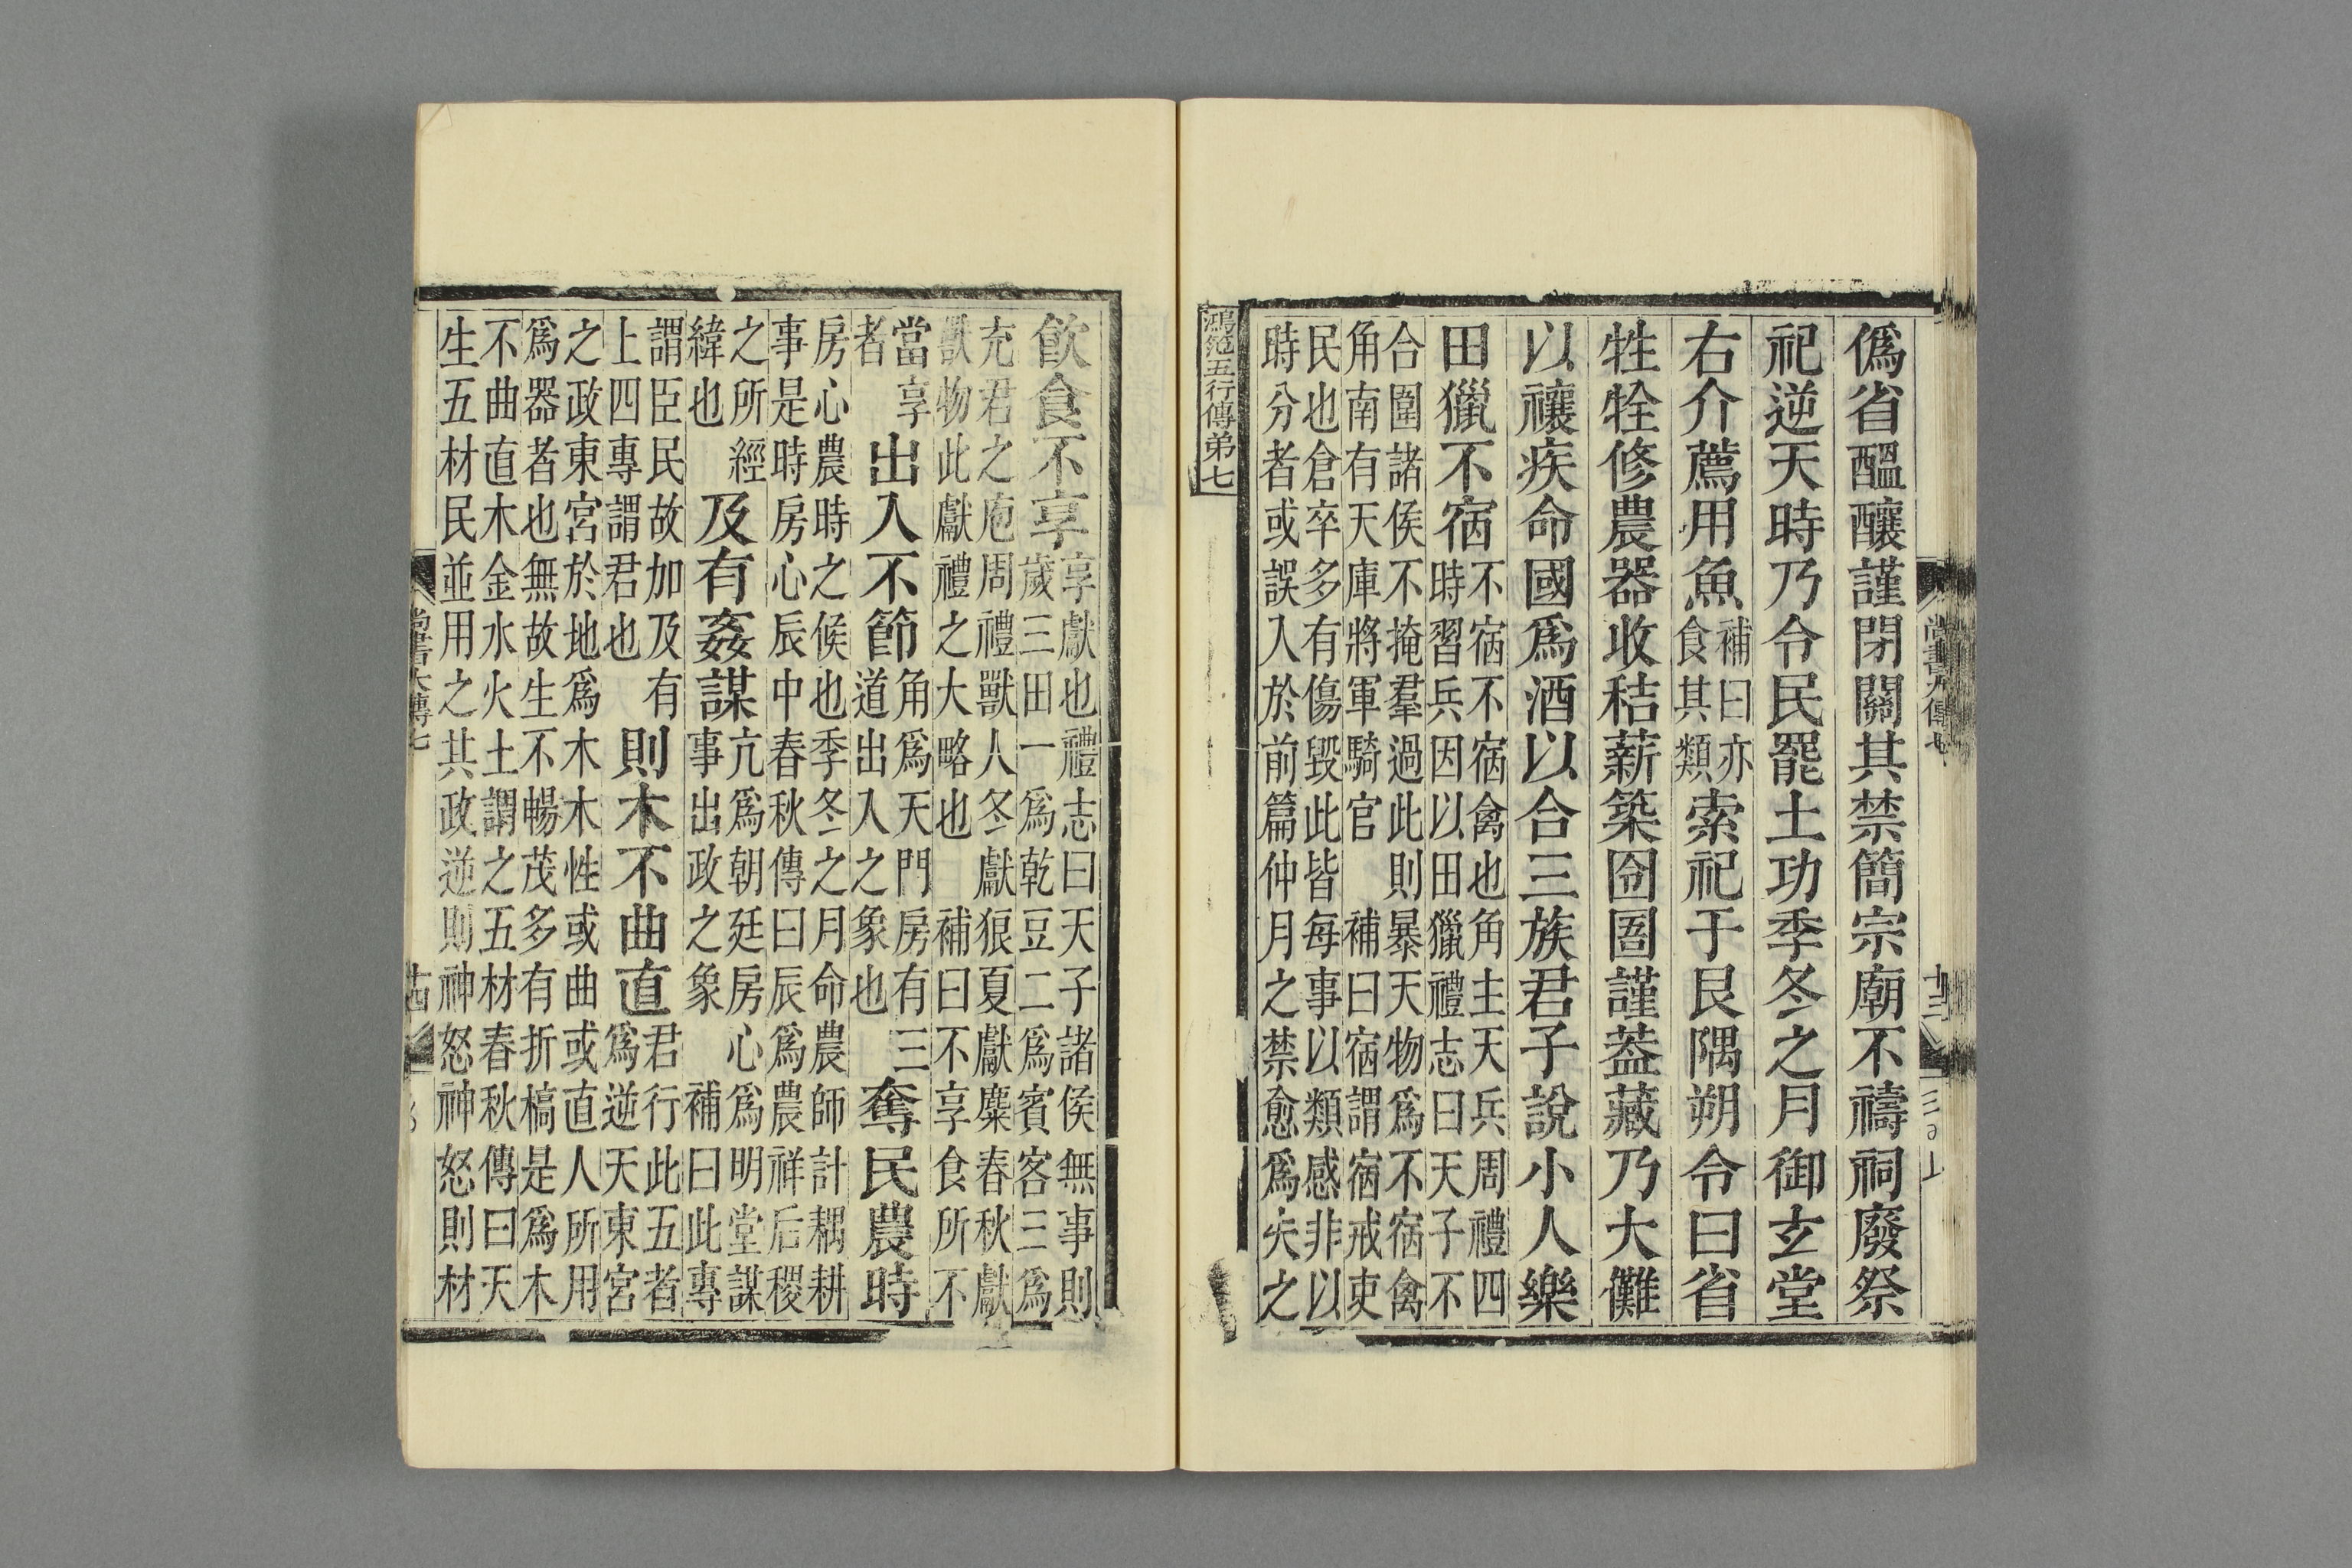 尚書大傳七
十三
僞省醞釀謹閉關其禁簡宗廟不禱祠廢祭
祀逆天時乃令民罷土功季冬之月御玄堂
右介薦用魚
補曰亦
食其類
索祀于艮隅朔令曰省
牲牷修農器收秸薪築囹圄謹葢藏乃大儺
以禳疾命國爲酒以合三族君子說小人樂
田獵不宿
不宿不宿禽也角主天兵周禮四
時習兵因以田獵禮志曰天子不
合圍諸侯不掩羣過此則暴天物爲不宿禽
角南有天庫將軍騎官 補曰宿謂宿戒吏
民也倉卒多有傷毀此皆每事以類感非以
時分者或誤入於前篇仲月之禁愈爲失之
鴻范五行傳弟七
飲食不享
享獻也禮志曰天子諸侯無事則
歲三田一爲乾豆二爲賓客三爲
充君之庖周禮獸人冬獻狼夏獻麋春秋獻
獸物此獻禮之大略也 補曰不享食所不
當享
者
出入不節
角爲天門房有三
道出入之象也
奪民農時
房心農時之候也季冬之月命農師計耦耕
事是時房心辰中春秋傳曰辰爲農祥后稷
之所經
緯也
及有姦謀
亢爲朝廷房心爲明堂謀
事出政之象 補曰此專
謂臣民故加及有
上四專謂君也
則木不曲直
君行此五者
爲逆天東宮
之政東宮於地爲木木性或曲或直人所用
爲器者也無故生不暢茂多有折槁是爲木
不曲直木金水火土謂之五材春秋傳曰天
生五材民並用之其政逆則神怒神怒則材
尚書大傳七
十四